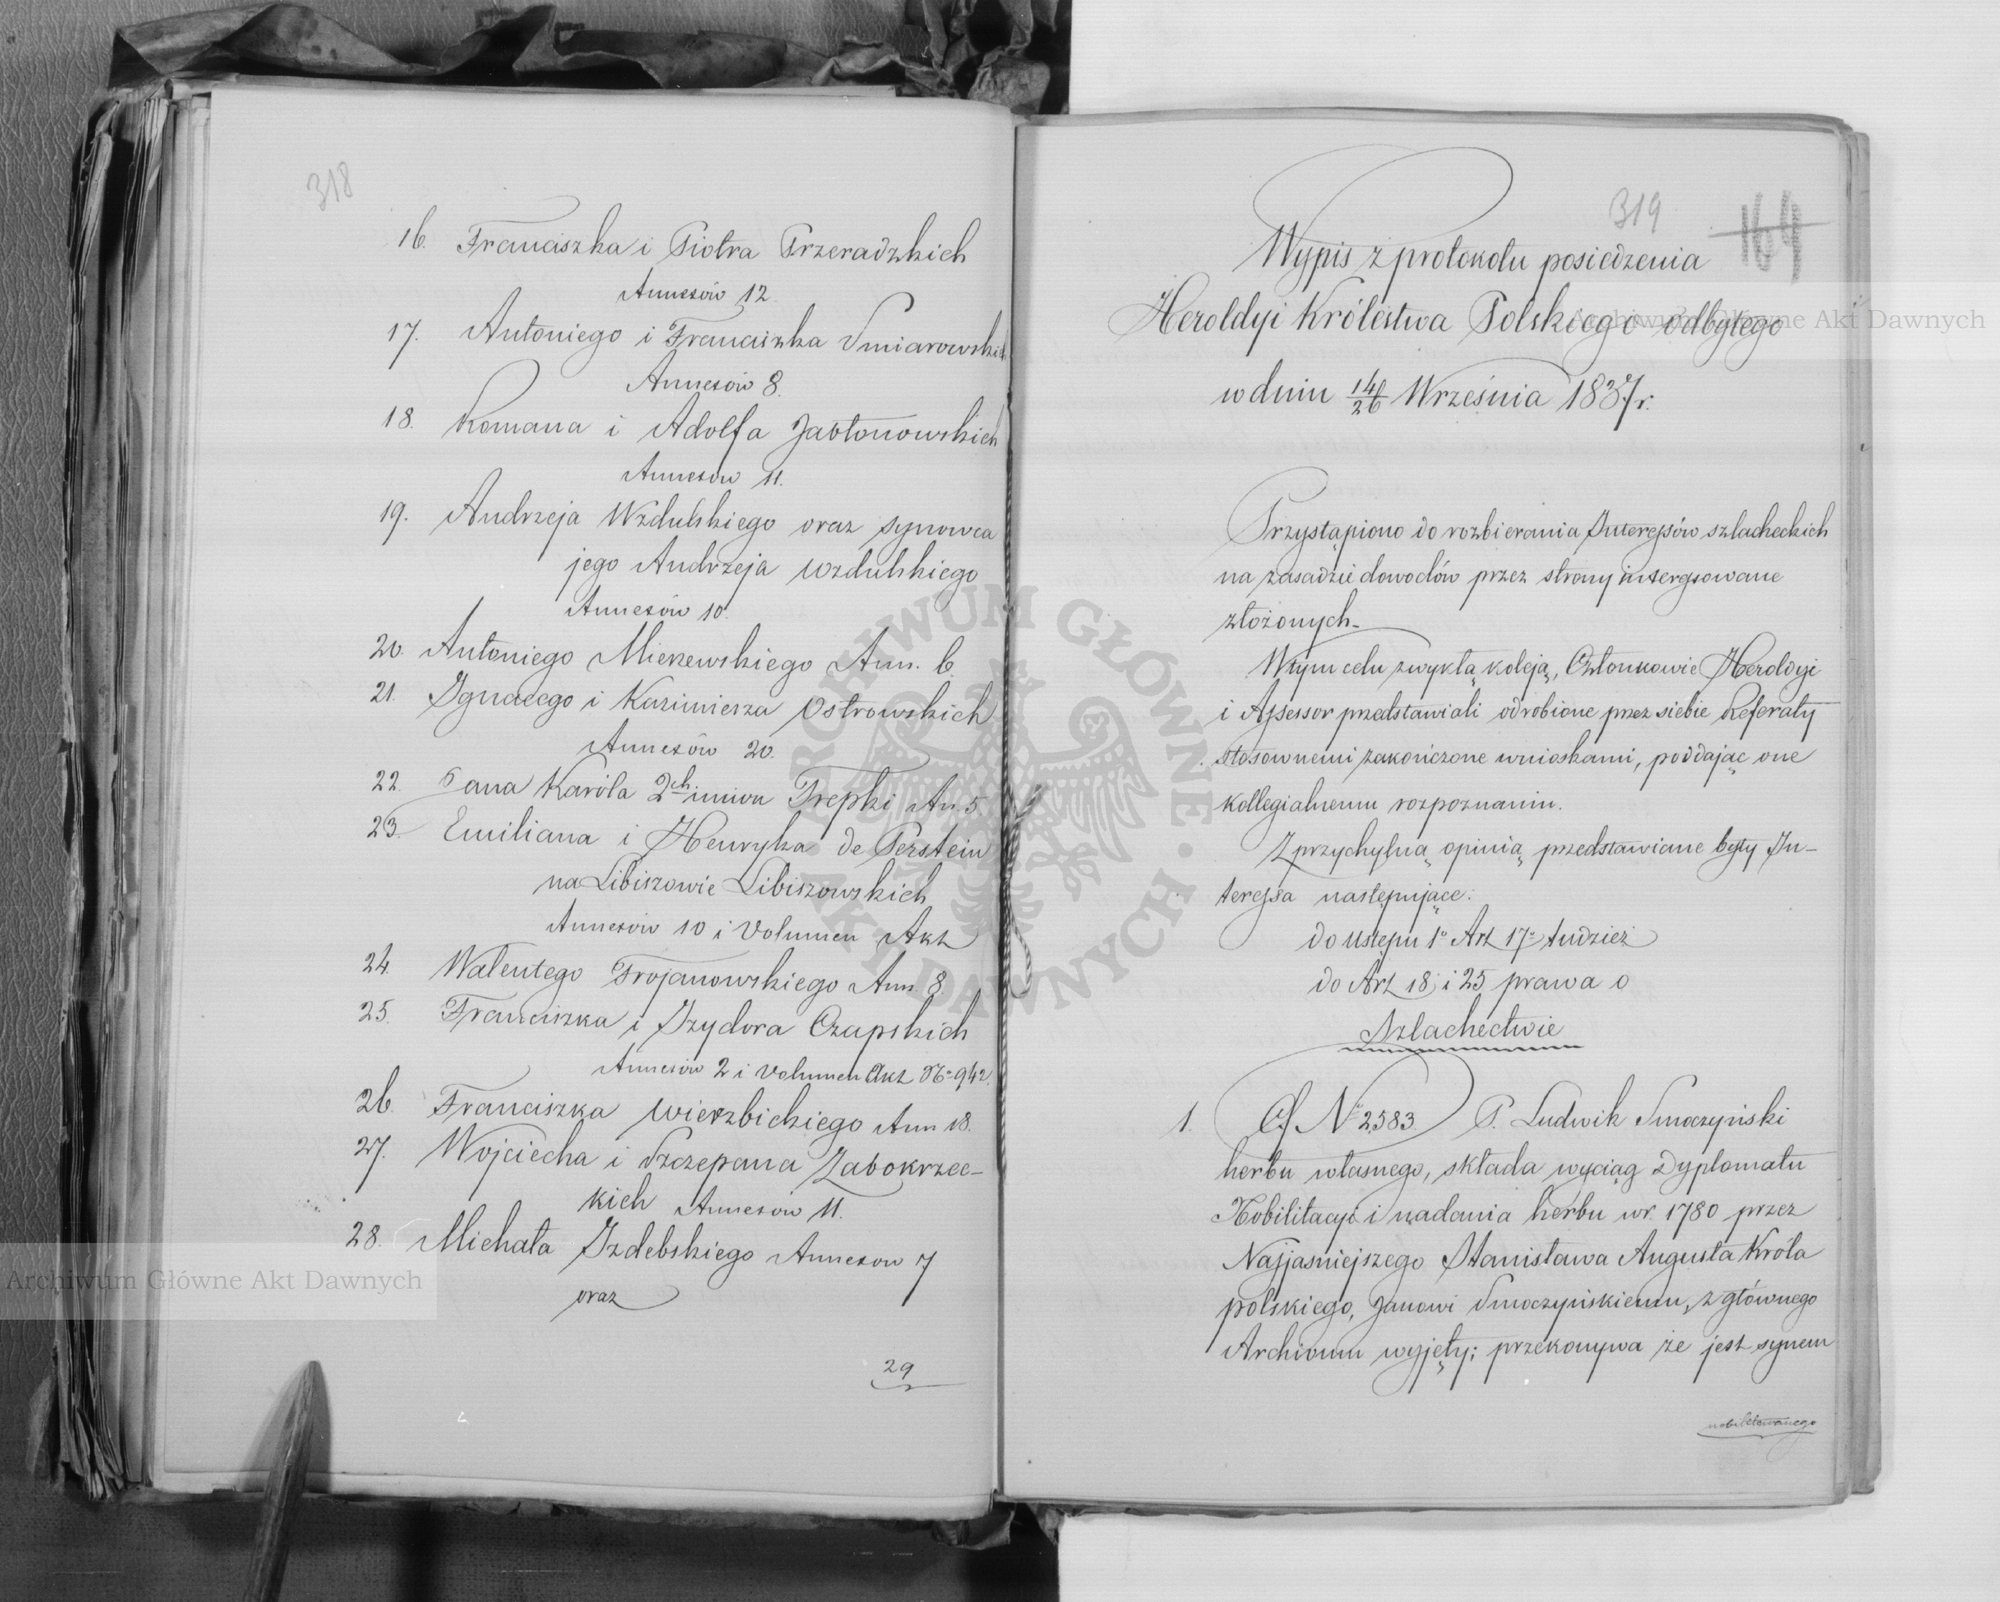 318
16. Franciszka i Piotra Przeradzkich
Annexów 12
17. Antoniego i Franciszka Smiarowskich
Annexów 8.
18. Romana i Adolfa Jabłonowskich
Annexów 11.
19. Andrzeja Wzdulskiego oraz synowca
jego Andrzeja Wzdulskiego
Annexów 10.
20. Antoniego Mierzewskiego Ann. 6.
21. Ignacego i Kazimierza Ostrowskich
Annexów 20.
22. Jana Karóla 2ch imion Trepki An. 5.
23. Emiliana i Henryka de Perstein
na Libiszowie Libiszowskich
Annexów 10 i Volumen Akt
24. Walentego Trojanowskiego Ann. 8
25. Franciszka i Izydora Czapskich
Annexów 2 i Volumen Akt No 942.
26. Franciszka Wierzbickiego Ann 18.
27. Wojciecha i Szczepana Zabokrzec-
kich Annexow 11.
28. Michała Izdebskiego Annexow 7
oraz
29
319
164
Wypis z protokołu posiedzenia
Heroldyi Królestwa Polskiego odbytego
w dniu 14/26 Września 1837 r.
Przystąpiono do rozbierania Interessów szlacheckich
na zasadzie dowodów przez strony interesowane
złożonych.
W tym celu zwykłą koleją, Członkowie Heroldyi
i Assessor przedstawiali odrobione przez siebie Referaty
stosownemi zakończone wnioskami, poddając one
kollegialnemu rozpoznaniu.
Z przychylną opinią przedstawiane były In-
teressa następujące:
do Ustępu 1o Art 17o tudzież
do Art 18 i 25 prawa o
Szlachectwie
1. Of No 2583 P. Ludwik Smoczyński
herbu własnego, składa wyciąg Dyplomatu
Nobilitacyi i nadania herbu w r. 1780 przez
Najjaśniejszego Stanisława Augusta Króla
polskiego, Janowi Smoczyńskiemu, z głównego
Archiwum wyjęty; przekonywa że jest synem
nobilitowanego
Archiwum Główne Akt Dawnych
Archiwum Główne Akt Dawnych
ARCHIWUM GŁÓWNE AKT DAWNYCH